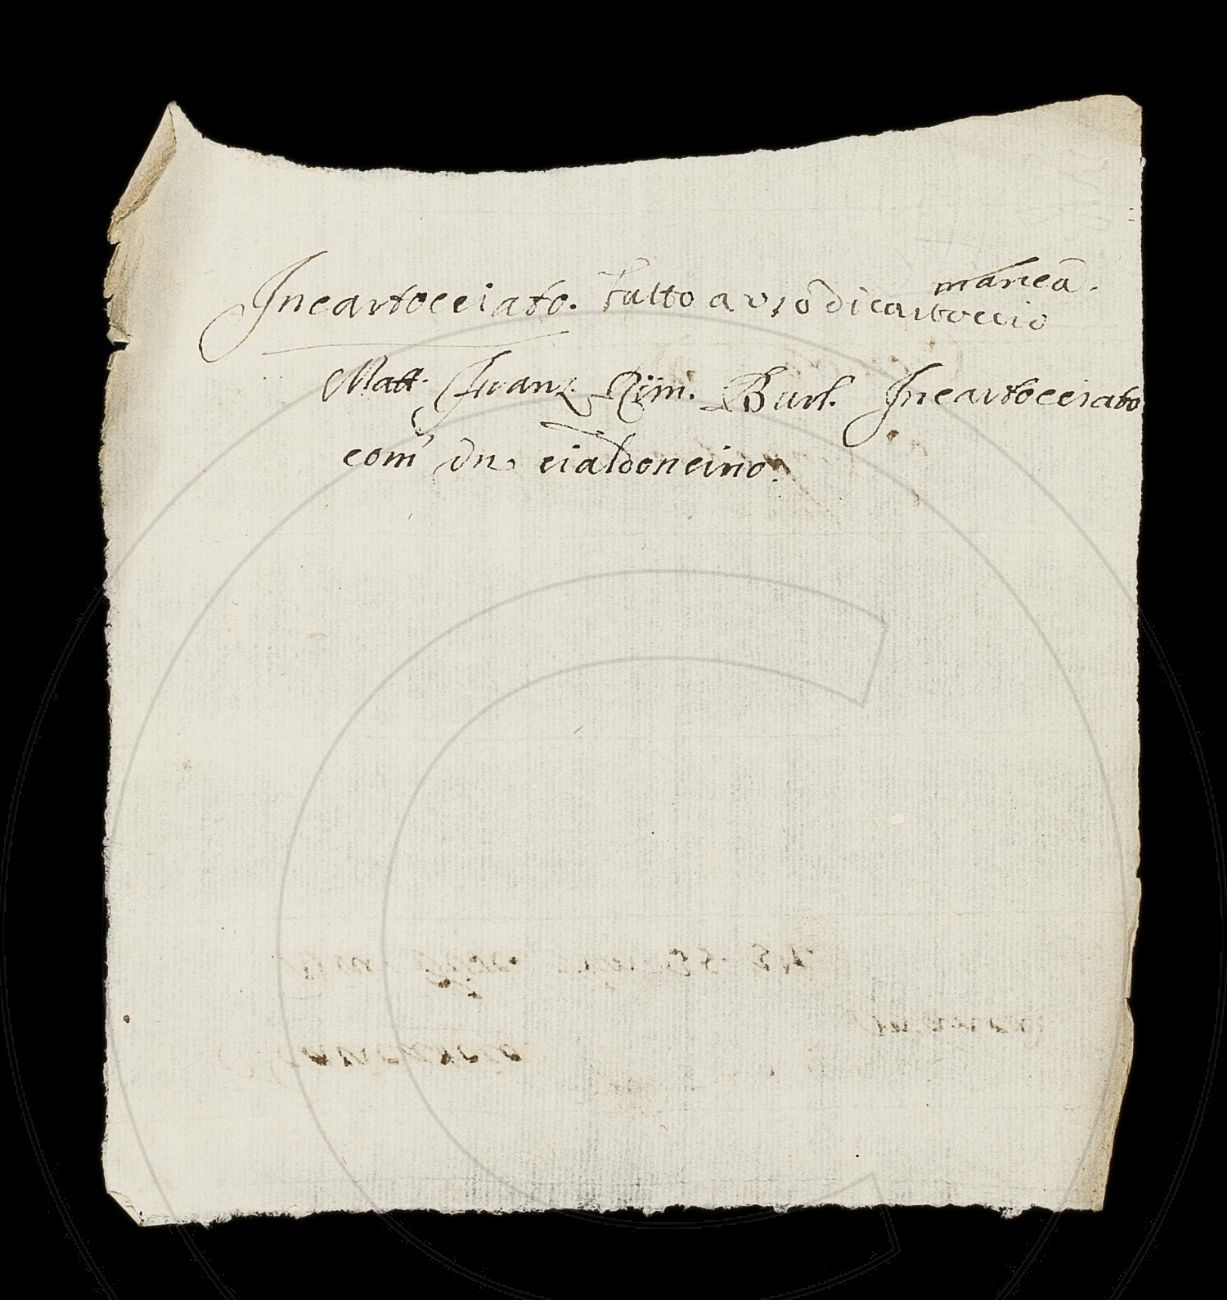 Incartocciato. Fatto a uso di cartoccio manca.
Matt. Franz. Rim. Burl. Incartocciato
com' un cialdoncino.